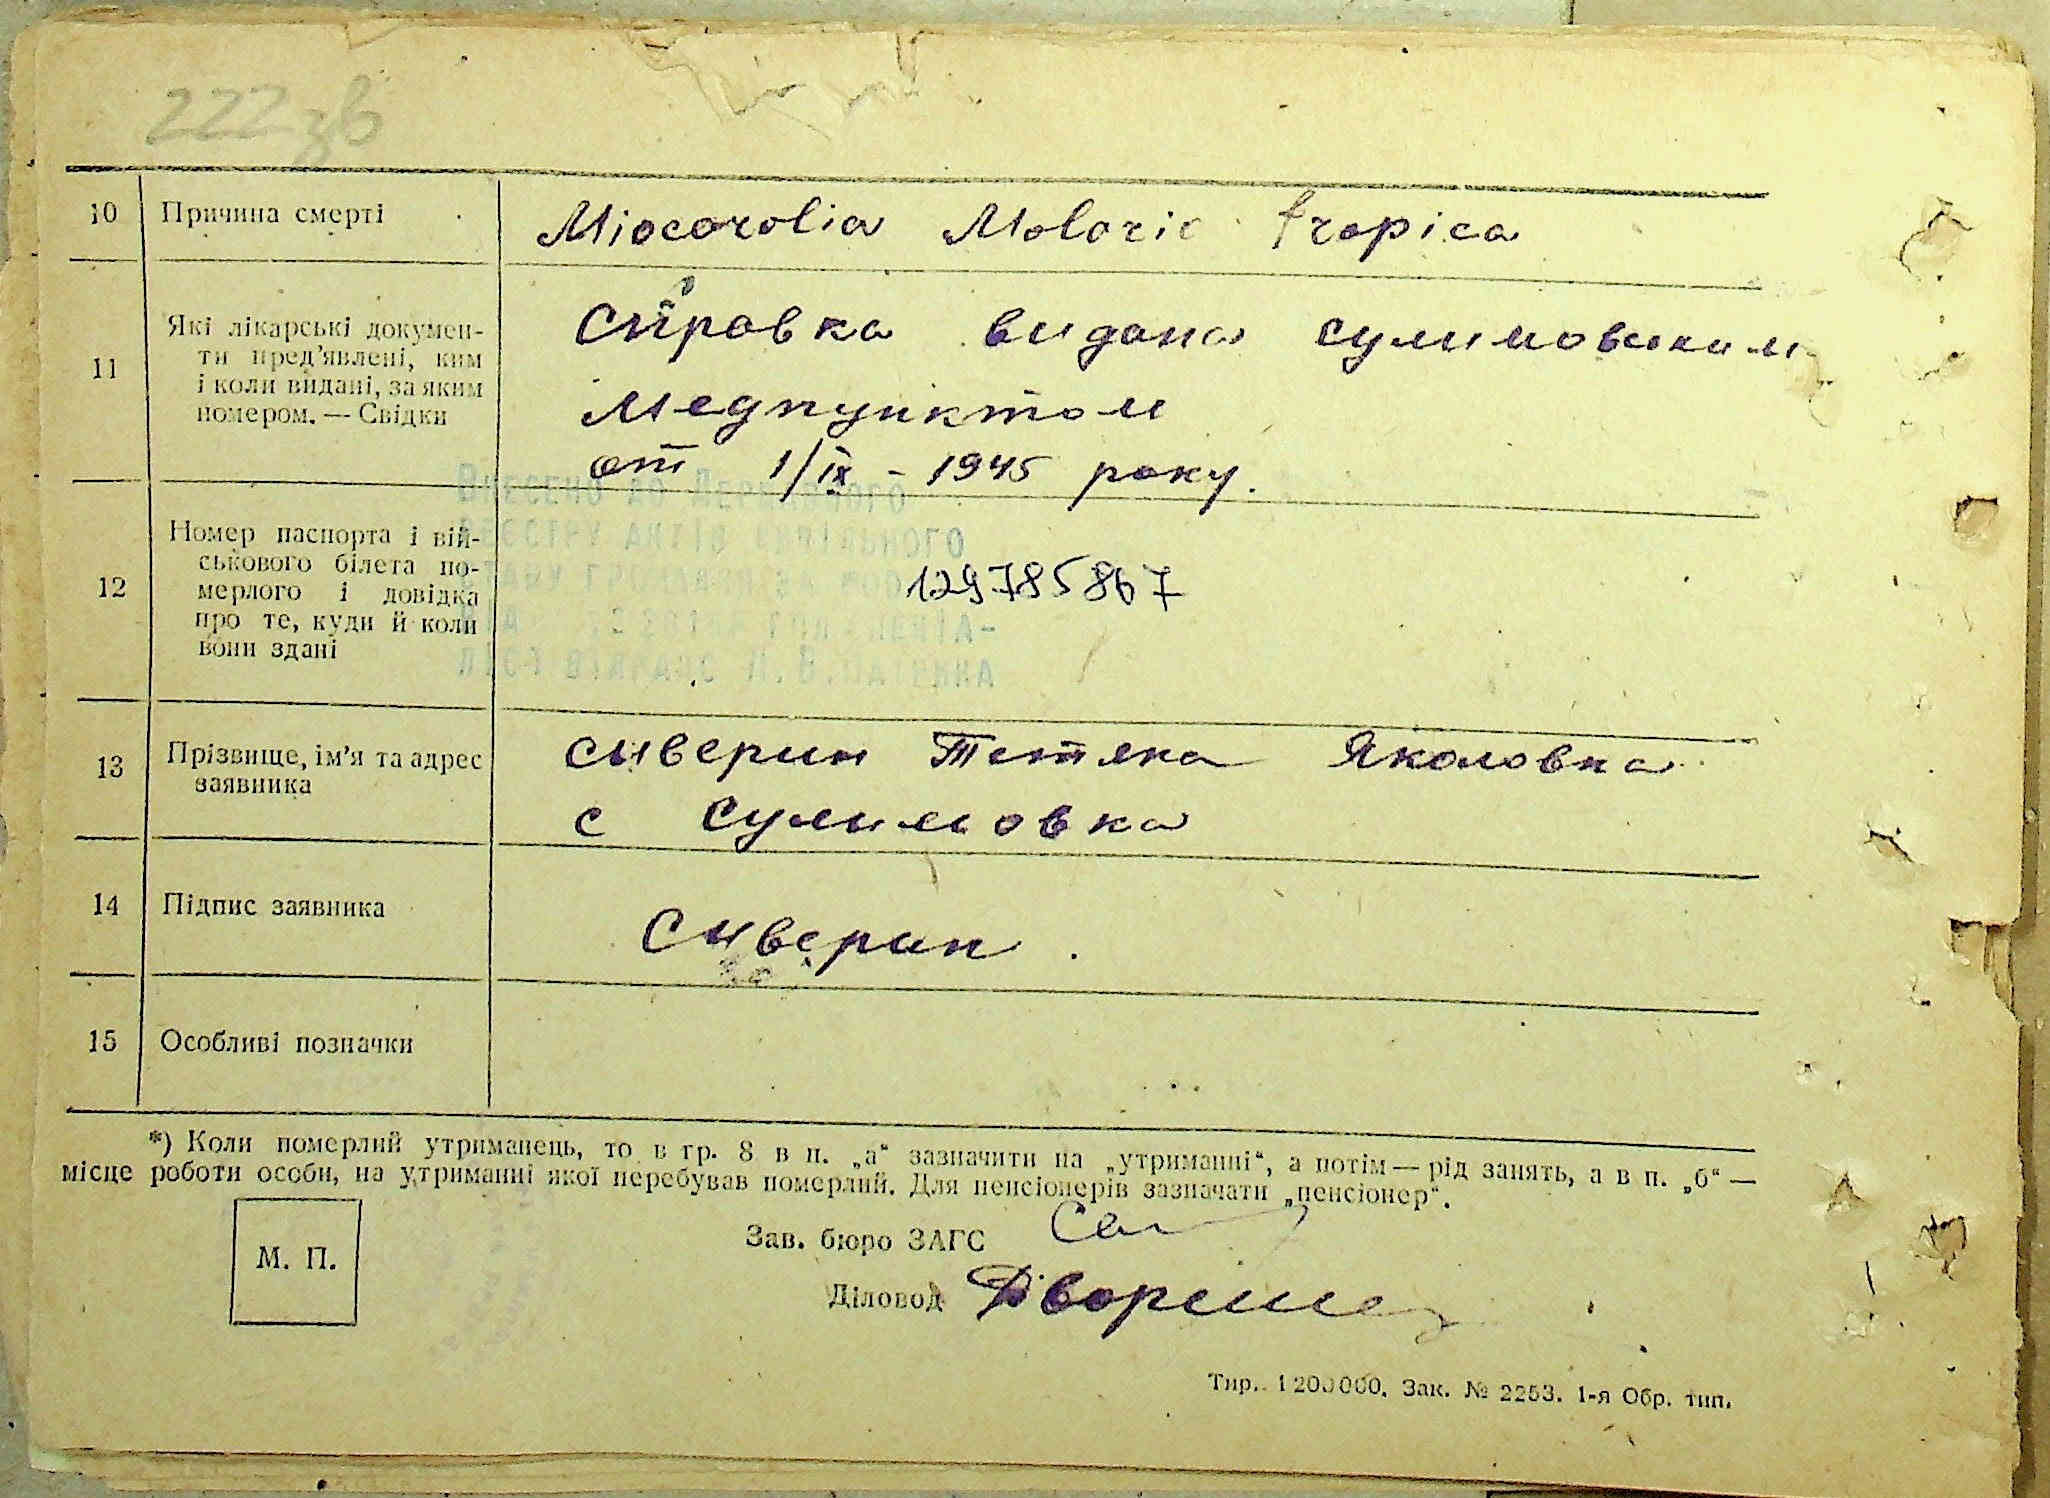 222 зв
10 Причина смерті Miocorolia Moloric tropica
11 Які лікарські докумен-
ти пред'явлені, ким
і коли видані, за яким
номером. — Свідки
Справка видана сулимовским
медпунктом
от 1/IX - 1945 року.
12 Номер паспорта і вій-
ськового білета по-
мерлого і довідка
про те, куди й коли
вони здані
Внесено до Державного
реєстру актів цивільного
129785867
13 Прізвище, ім'я та адрес
заявника
Сиверин Тетяна Яколовна
с Сулимовка
14 Підпис заявника Сиверин.
15 Особливі позначки
*) Коли померлий утриманець, то в гр. 8 в п. „а“ зазначити на „утриманні“, а потім — рід занять, а в п. „б“ —
місце роботи особи, на утриманні якої перебував померлий. Для пенсіонерів зазначати „пенсіонер“.
М. П.
Зав. бюро ЗАГС
Діловод
Тир. 1200000. Зак. № 2253. 1-я Обр. тип.